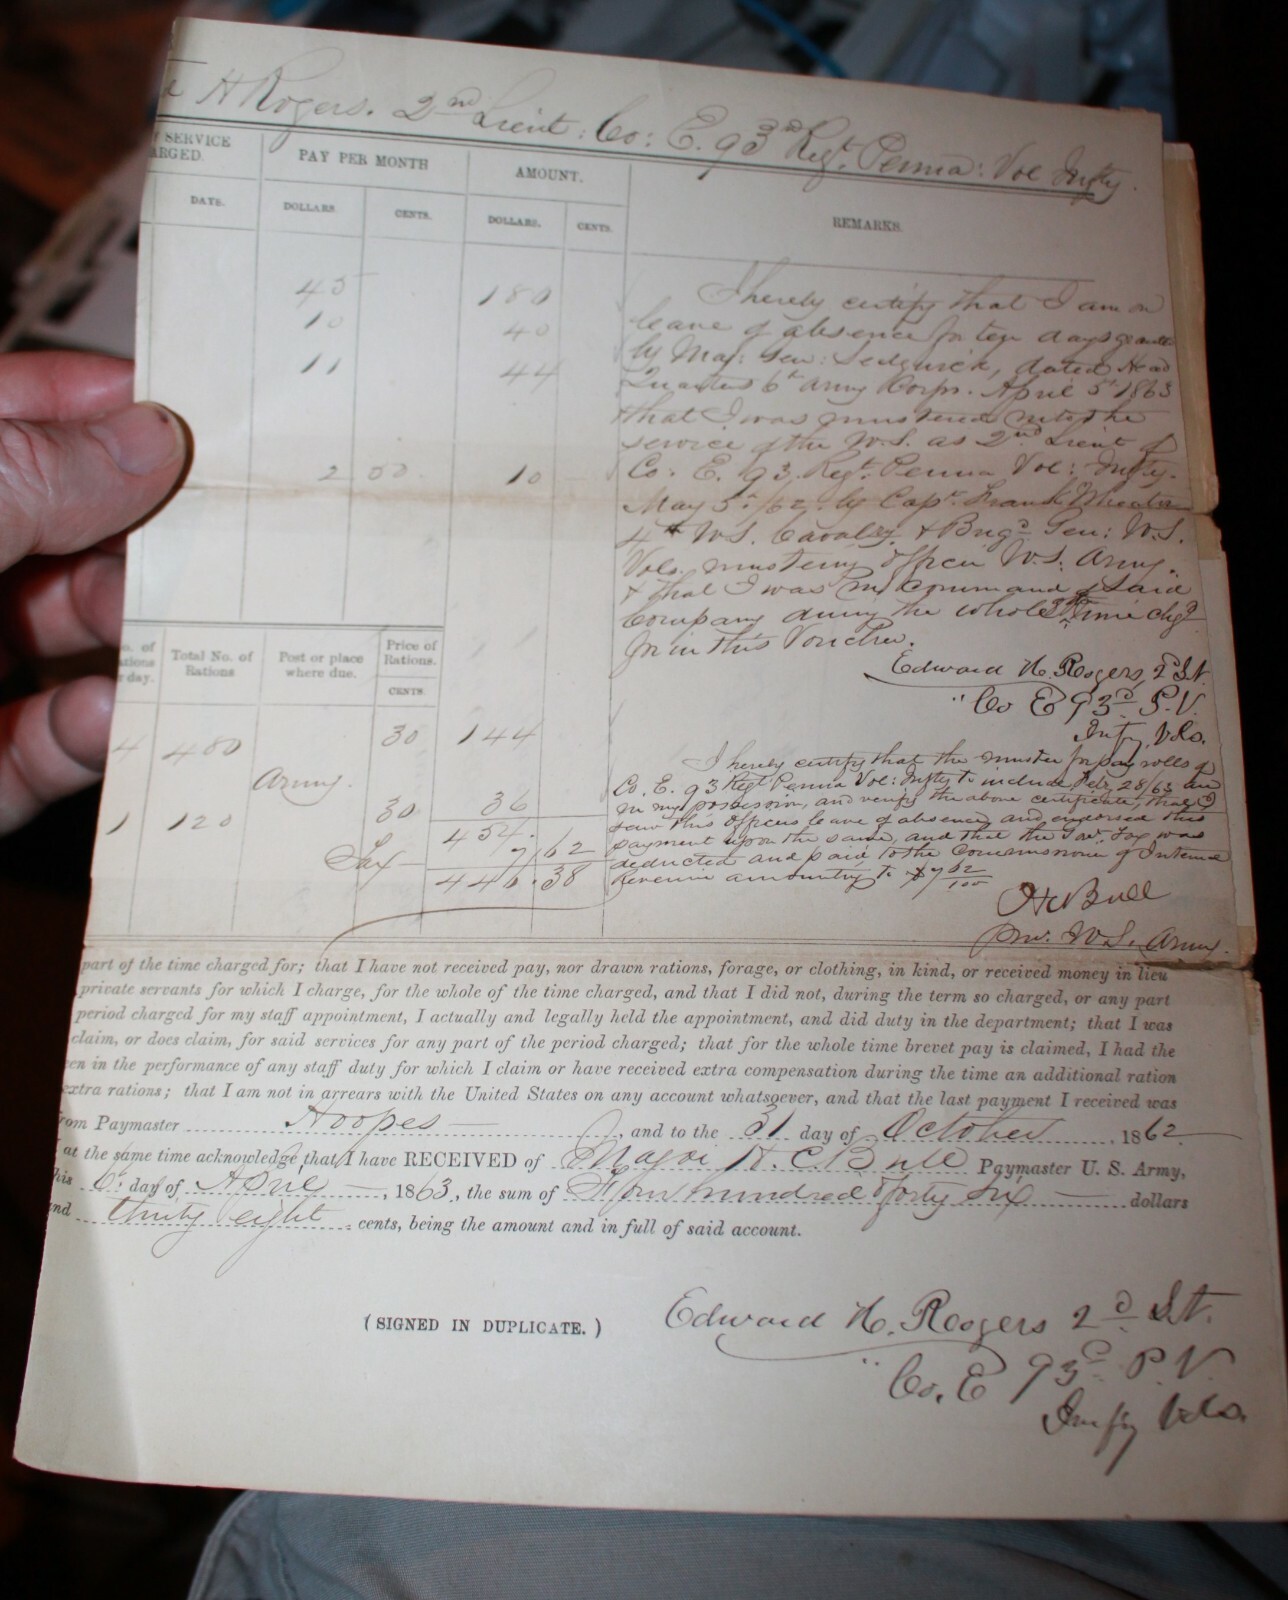 H Rogers. 2nd Lieut: Co: E. 93rd Regt. Penna: Vol Infty.
SERVICE
ARGED.
PAY PER MONTH
AMOUNT.
REMARKS.
DATE.
DOLLARS.
CENTS.
DOLLARS.
CENTS.
45 180
10 40
11 44
2 50 10
I hereby certify that I am on
leave of absence for ten days granted
by Maj: Gen: Sedgwick, dated Head
Quarters 6th Army Corps. April 5th 1863
that I was mustered into the
service of the U.S. as 2nd Lieut of
Co: E. 93 Regt. Penna Vol: Infty.
May 5th/62. by Capt. Frank Wheaton
4th U.S. Cavalry & Brigd Gen: U.S.
Vols. mustering officer U.S. Army.
& that I was in command of said
Company during the whole time chgd
for in this Voucher.
Edward H. Rogers, 2d Lt.
Co E 93d P.V.
Infy Vols.
o. of
ations
r day.
Total No. of
Rations
Post or place
where due.
Price of
Rations.
CENTS.
4 480 30 144
Army.
1 120 30 36
454.
Tax 7 62
446.38
I hereby certify that the muster for pay rolls of
Co. E. 93 Regt Penna Vol: Infty to include Feb, 28/63 are
in my possession, and verify the above certificate, that I
saw this officers leave of absence and endorsed this
payment upon the same, and that the Gov. Tax was
deducted and paid to the Commissioner of Internal
Revenue amounting to $7 62/100
H C Bull
Pmr. U.S. Army.
part of the time charged for; that I have not received pay, nor drawn rations, forage, or clothing, in kind, or received money in lieu
private servants for which I charge, for the whole of the time charged, and that I did not, during the term so charged, or any part
period charged for my staff appointment, I actually and legally held the appointment, and did duty in the department; that I was
claim, or does claim, for said services for any part of the period charged; that for the whole time brevet pay is claimed, I had the
en in the performance of any staff duty for which I claim or have received extra compensation during the time an additional ration
extra rations; that I am not in arrears with the United States on any account whatsoever, and that the last payment I received was
from Paymaster Hoopes, and to the 31 day of October, 1862
at the same time acknowledge that I have RECEIVED of Major H. C. Bull Paymaster U. S. Army,
his 6th day of April, 1863, the sum of Four hundred & forty six dollars
nd thirty eight cents, being the amount and in full of said account.
(SIGNED IN DUPLICATE.)
Edward H. Rogers 2d Lt.
Co. E 93d P.V.
Infy Vols.